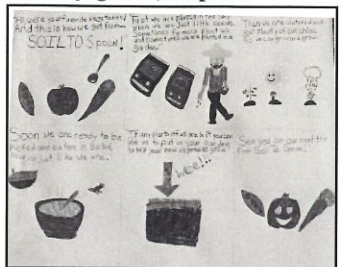 We're your favorite vegetables!
And this is how we get from
SOIL TO Spoon!
First we are planted in the soil
when we are just little seeds.
Sometimes
and sometimes we are planted in a
garden.
Then we are watered and
get plenty of sunshine
so we can grow and grow.
Soon we are ready to be
picked and eaten in salad,
or just like we are.
If any parts of us are left you can
use us to put in your garden
to help your new vegetables grow.
Wee!...
See you on our next trip
from Soil to Spoon!